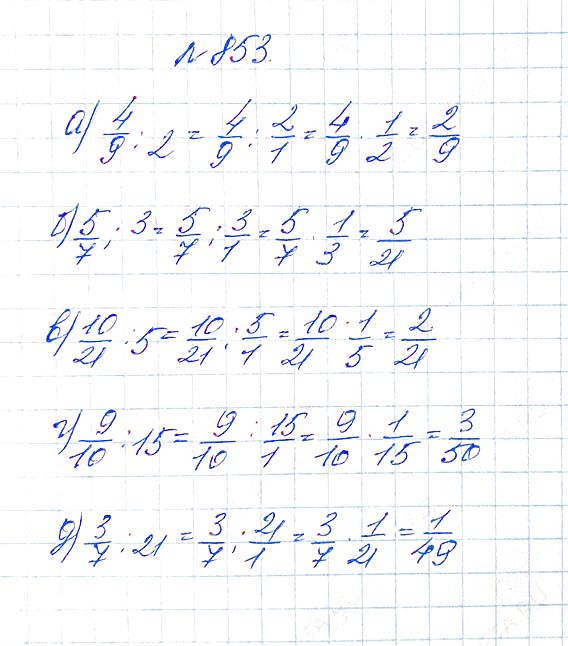 № 853.
а) 4/9 : 2 = 4/9 : 2/1 = 4/9 · 1/2 = 2/9
б) 5/7 : 3 = 5/7 : 3/1 = 5/7 · 1/3 = 5/21
в) 10/21 : 5 = 10/21 : 5/1 = 10/21 · 1/5 = 2/21
г) 9/10 : 15 = 9/10 : 15/1 = 9/10 · 1/15 = 3/50
д) 3/7 : 21 = 3/7 : 21/1 = 3/7 · 1/21 = 1/49